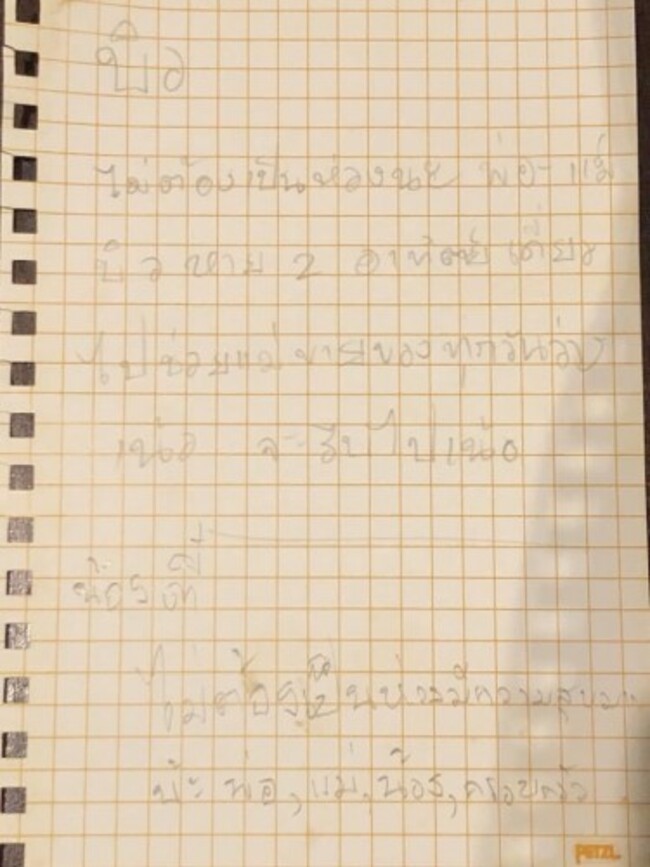 บิว
ไม่ต้องเป็นห่วงนะ พ่อ-แม่
บิวหาย 2 อาทิตย์เดี๋ยว
ไปช่วยแม่ขายของทุกวัน
เน้อ จะรีบไปเน้อ
น้อง
ไม่ต้องเป็นห่วงมีความสุข
พ่อ, แม่, น้อง, ครอบครัว
PETZL